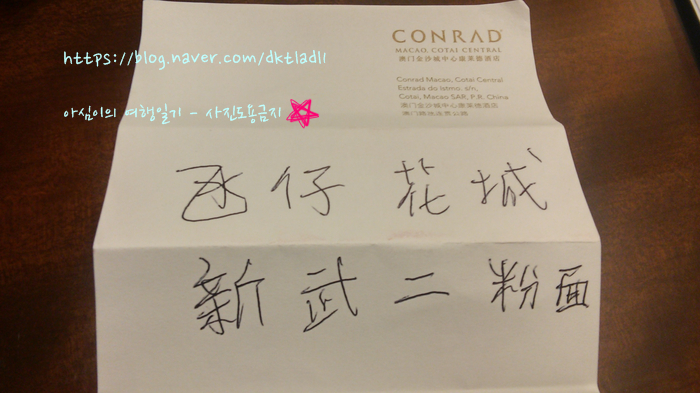 https://blog.naver.com/dktladl1
아심이의 여행일기 - 사진도용금지
CONRAD
MACAO, COTAI CENTRAL
澳门金沙城中心康莱德酒店
Conrad Macao, Cotai Central
Estrada do Istmo. s/n,
Cotai, Macao SAR, P.R. China
澳门金沙城中心康莱德酒店
澳门路氹连贯公路
氹仔 花城
新武二粉面